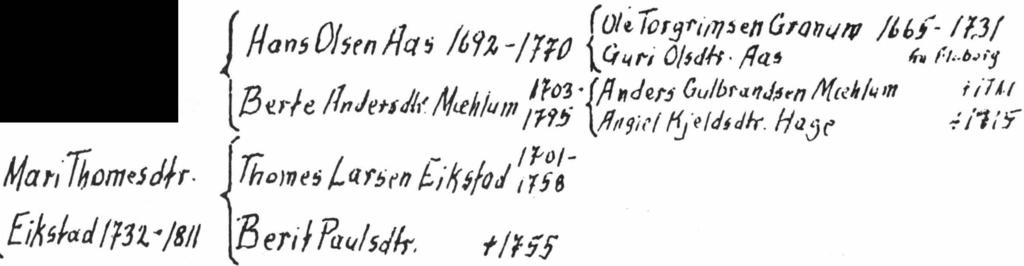 Hans Olsen Aas 1692-1770
Ole Torgrimsen Granum 1665-1731
Guri Olsdtr. Aas
Berte Andersdtr. Mæhlum 1703-1795
Anders Gulbrandsen Mæhlum
Kjeldsdtr. Hage ÷1715
Mari Thomesdtr.
Eikstad 1732-1811
Thomes Larsen Eikstad 1701-1758
Berit Paulsdtr. +1755